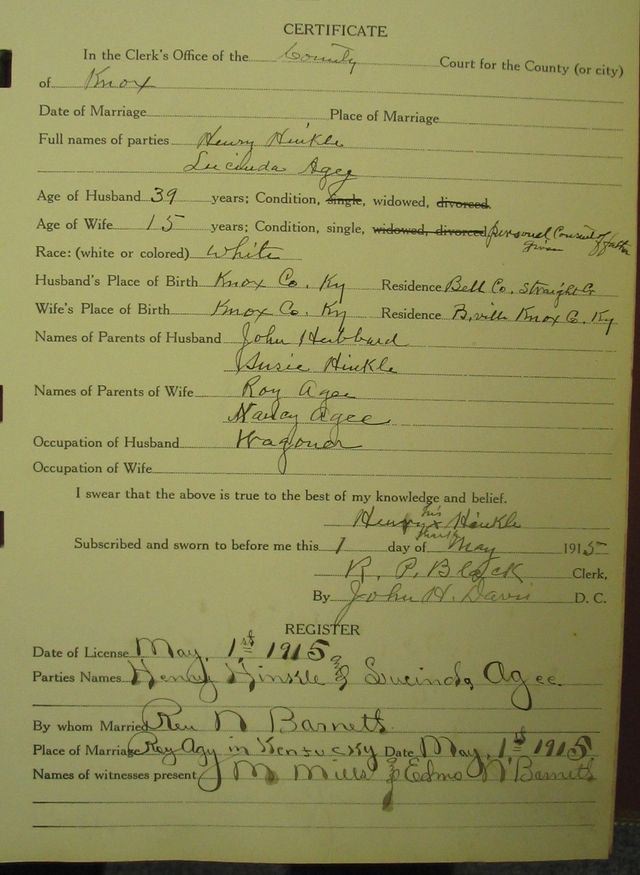 CERTIFICATE
In the Clerk's Office of the County Court for the County (or city)
of Knox
Date of Marriage Place of Marriage
Full names of parties Henry Hinkle
Lucinda Agee
Age of Husband 39 years; Condition, single, widowed, divorced.
Age of Wife 15 years; Condition, single, widowed, divorced personal Consent of father
Given
Race: (white or colored) white
Husband's Place of Birth Knox Co. Ky Residence Bell Co. Straight Cr
Wife's Place of Birth Knox Co. Ky Residence B.ville Knox Co. Ky
Names of Parents of Husband John Hubbard
Susie Hinkle
Names of Parents of Wife Roy Agee
Nancy Agee
Occupation of Husband Wagoner
Occupation of Wife
I swear that the above is true to the best of my knowledge and belief.
his
Henry x Hinkle
mark
Subscribed and sworn to before me this 1 day of May 1915
R. P. Black Clerk,
By John H. Davis D. C.
REGISTER
Date of License May, 1st 1915
Parties Names Henry Hinkle & Lucinda Agee
By whom Married Rev N Barnett
Place of Marriage Roy Agy in Kentucky Date May, 1st 1915
Names of witnesses present J M Mills & Edmo N Barnett